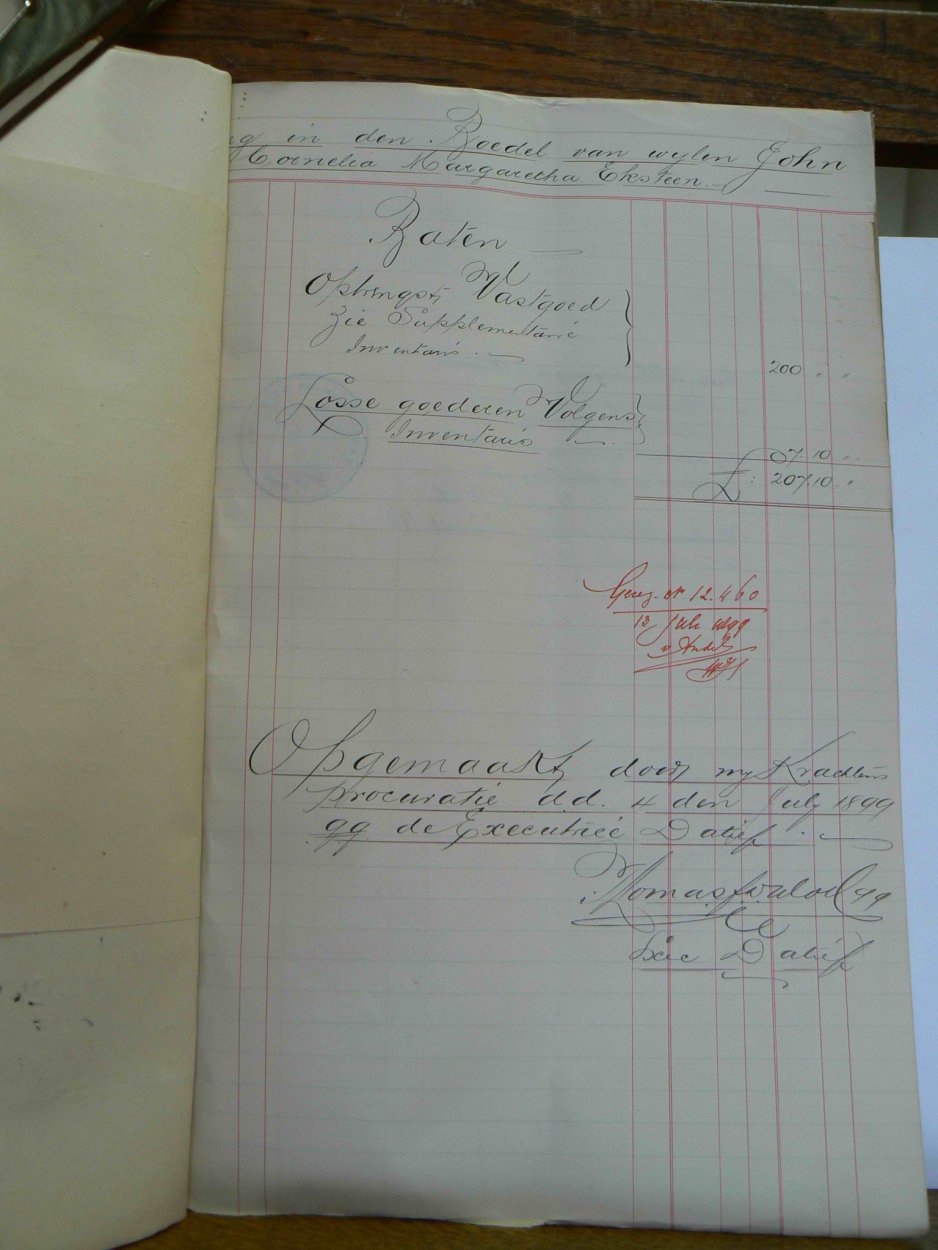 in den Boedel van wylen John
Cornelia Margaretha Eksteen
Baten
Opbrengst Vastgoed
Zie Supplementarie
Inventaris
200 " "
Losse goederen Volgens
Inventaris
07.10 "
£ : 207.10 "
Gereg. N 12.460
13 July 1899
Opgemaakt door my Krachtens
procuratie d.d. 4 den July 1899
qq de Executrice Datief
qq
Exec Datief